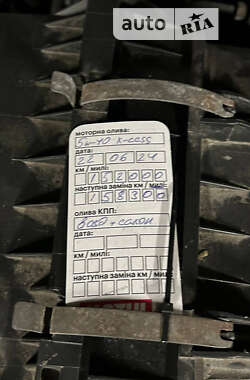 auto RIA
моторна олива:
5w-40 X-cess
дата:
22 06 24
км / милі:
152000
наступна заміна км / милі:
158300
олива КПП:
дата:
км / милі:
наступна заміна км / милі: